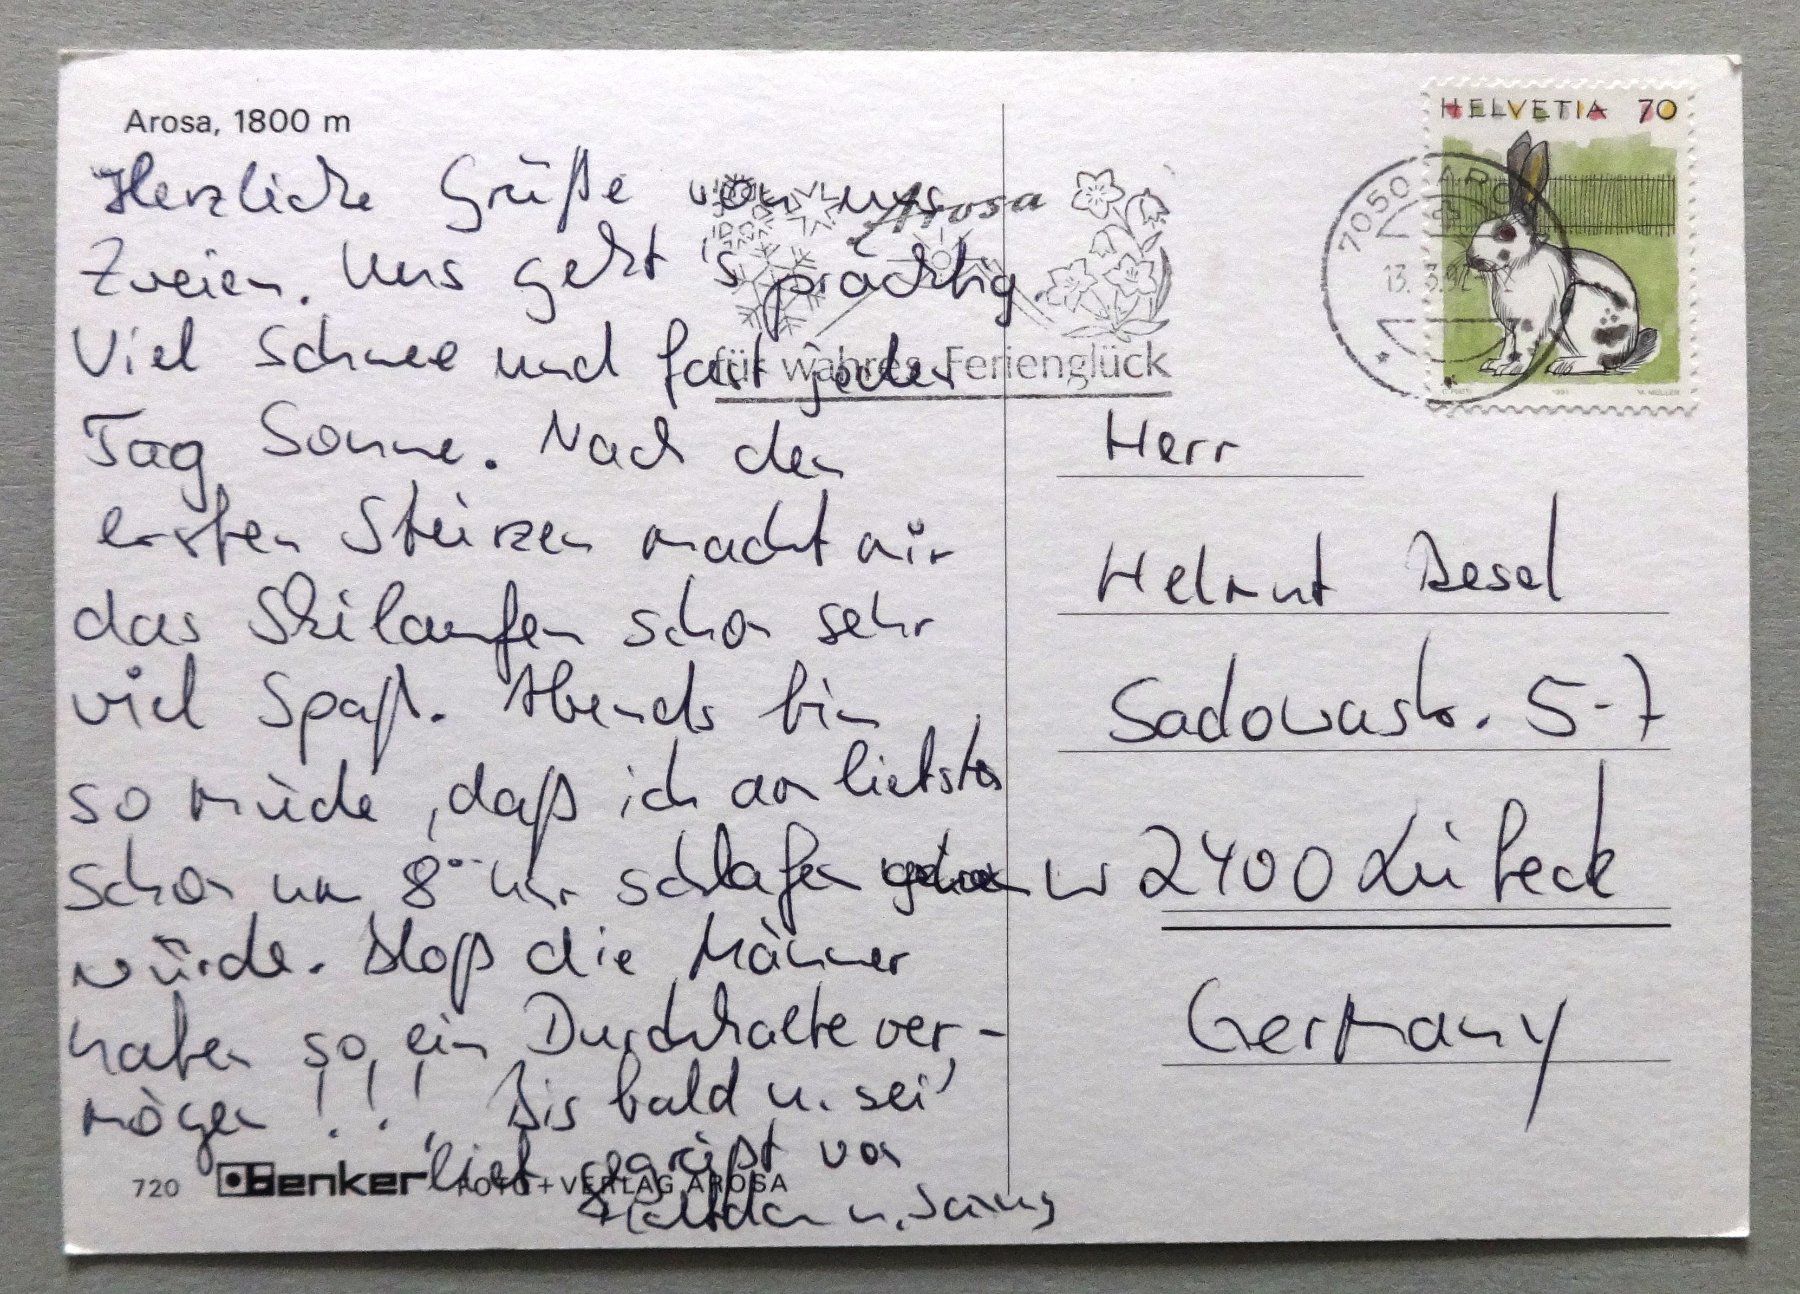 Arosa, 1800 m
Herzliche Grüße von uns
Zweien. Uns geht's prächtig
Viel Schnee und fast jeden
Tag Sonne. Nach den
ersten Stürzen macht mir
das Skilaufen schon sehr
viel Spaß. Abends bin
so müde, daß ich am liebsten
schon um 8°° Uhr schlafen
würde. Bloß die Männer
haben so ein Durchhaltever-
mögen!!! Bis bald u. sei
lieb gegrüßt von
u.
720 benker FOTO+VERLAG AROSA
Arosa
für wahres Ferienglück
HELVETIA 70
7050 AROSA
13.3.92
M. MÜLLER
Herr
Helmut Besel
Sadowastr. 5-7
W 2400 Lübeck
Germany